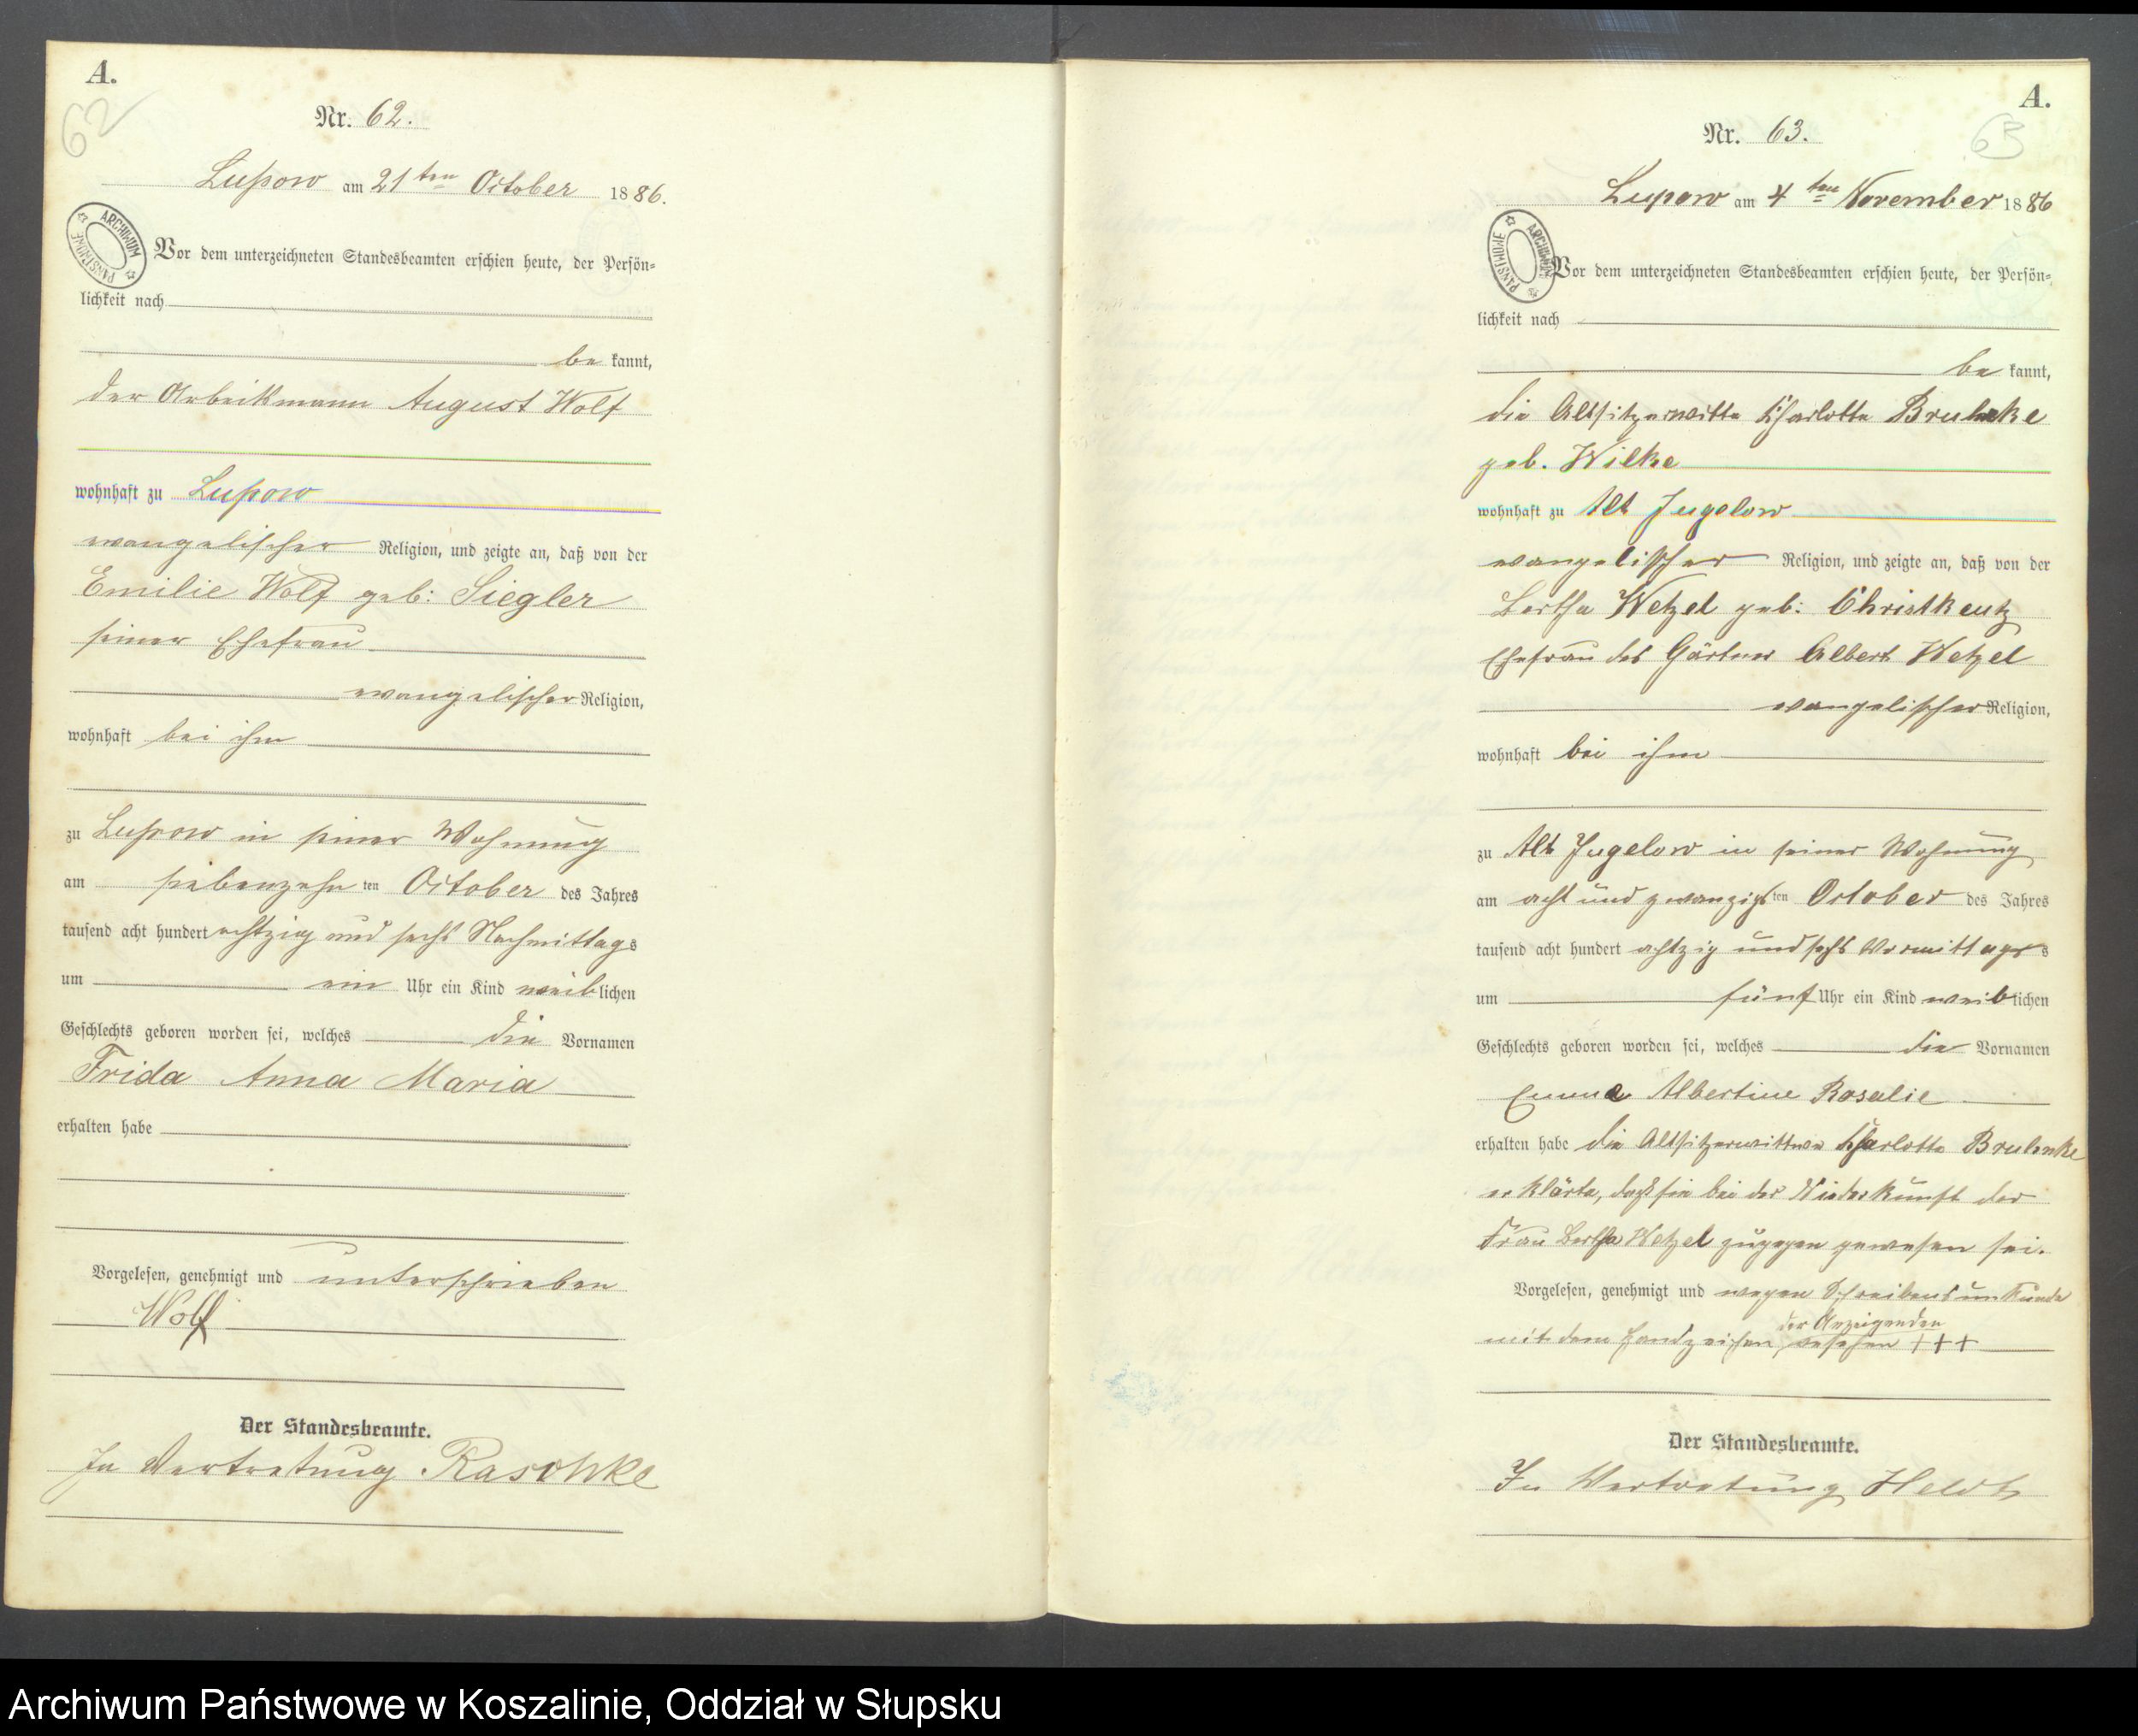 A.
62
Nr. 62.
Lupow am 21ten October 1886.
ARCHIWUM PAŃSTWOWE
Vor dem unterzeichneten Standesbeamten erschien heute, der Persön=
lichkeit nach
be kannt,
der Arbeitsmann August Wolf
wohnhaft zu Lupow
evangelischer Religion, und zeigte an, daß von der
Emilie Wolf geb: Siegler
seiner Ehefrau
evangelischer Religion,
wohnhaft bei ihm
zu Lupow in seiner Wohnung
am siebenzehn ten October des Jahres
tausend acht hundert achtzig und sechs Nachmittags
um ein Uhr ein Kind weiblichen
Geschlechts geboren worden sei, welches die Vornamen
Frida Anna Maria
erhalten habe
Vorgelesen, genehmigt und unterschrieben
Wolf
Der Standesbeamte.
In Vertretung Raschke
A.
63
Nr. 63.
Lupow am 4ten November 1886
ARCHIWUM PAŃSTWOWE
Vor dem unterzeichneten Standesbeamten erschien heute, der Persön=
lichkeit nach
be kannt,
die Altsitzerwittwe Charlotte Bruhnke
geb. Wilke
wohnhaft zu Alt Jugelow
evangelischer Religion, und zeigte an, daß von der
Bertha Wetzel geb: Christkautz
Ehefrau des Gärtner Albert Wetzel
evangelischer Religion,
wohnhaft bei ihm
zu Alt Jugelow in seiner Wohnung
am acht und zwanzigsten October des Jahres
tausend acht hundert achtzig und sechs Vormittags
um fünf Uhr ein Kind weiblichen
Geschlechts geboren worden sei, welches die Vornamen
Emma Albertine Rosalie
erhalten habe die Altsitzerwittwe Charlotte Bruhnke
erklärte, daß sie bei der Niederkunft der
Frau Bertha Wetzel zugegen gewesen sei.
Vorgelesen, genehmigt und wegen Schreibensunkunde
der Anzeigenden
mit dem Handzeichen versehen +++
Der Standesbeamte.
In Vertretung Heldt
Archiwum Państwowe w Koszalinie, Oddział w Słupsku